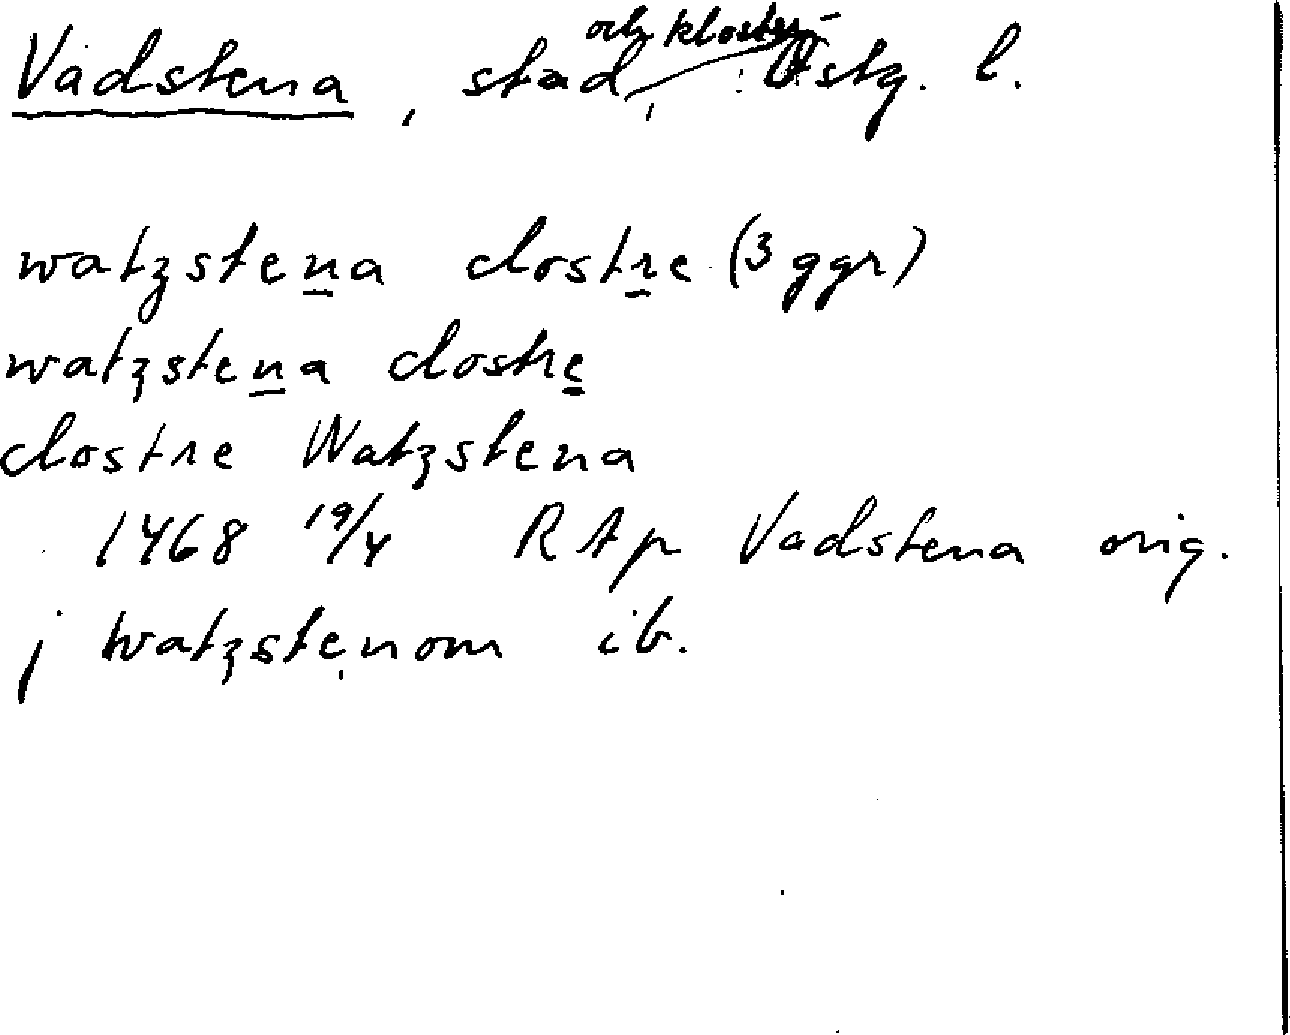 Vadstena, stad och kloster, Östg. l.
watzstena clostre (3 ggr)
watzstena clostre
clostre Watzstena
1468 19/4 RAp Vadstena orig.
j watzstenom ib.